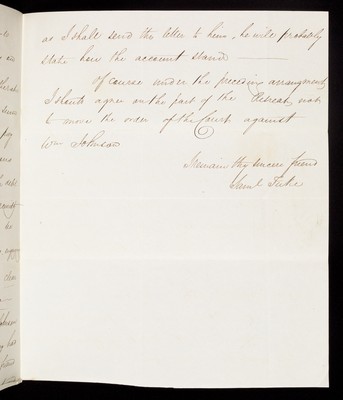 as I shall send the letter to him, he will probably
state how the account stands —
of course under the preceding arrangement
I should agree on the part of the Retreat, not
to move the order of the Court against
Wm Johnson
I remain thy sincere friend
Saml Tuke